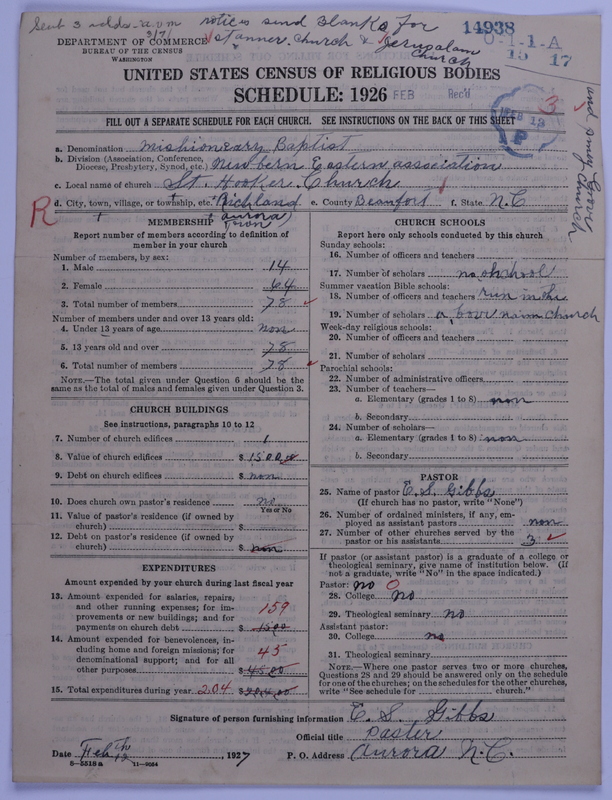 Sent 3 adds a.v.m notices send Blanks for 14938
3/7/1 St anner. Church & Jerusalam Church
DEPARTMENT OF COMMERCE
BUREAU OF THE CENSUS
WASHINGTON
0-1-1-A
15 17
UNITED STATES CENSUS OF RELIGIOUS BODIES
SCHEDULE: 1926 FEB Rec'd 3
FEB 12 P
FILL OUT A SEPARATE SCHEDULE FOR EACH CHURCH. SEE INSTRUCTIONS ON THE BACK OF THIS SHEET
and Grove Church
a. Denomination Mishioneary Baptist
b. Division (Association, Conference, Diocese, Presbytery, Synod, etc.) Newbern Eastern association
c. Local name of church St. Hooker. Church
R d. City, town, village, or township, etc. Richland e. County Beaufort f. State N.C
(aurora) Town
MEMBERSHIP
Report number of members according to definition of
member in your church
Number of members, by sex:
1. Male 14
2. Female 64
3. Total number of members 78
Number of members under and over 13 years old:
4. Under 13 years of age non
5. 13 years old and over 78
6. Total number of members 78
NOTE.—The total given under Question 6 should be the
same as the total of males and females given under Question 3.
CHURCH BUILDINGS
See instructions, paragraphs 10 to 12
7. Number of church edifices 1
8. Value of church edifices $ 1500
9. Debt on church edifices $ non
10. Does church own pastor's residence no
Yes or No
11. Value of pastor's residence (if owned by
church) $
12. Debt on pastor's residence (if owned by
church) $ non
EXPENDITURES
Amount expended by your church during last fiscal year
13. Amount expended for salaries, repairs,
and other running expenses; for im-
provements or new buildings; and for
payments on church debt 159 $
14. Amount expended for benevolences, in-
cluding home and foreign missions; for
denominational support; and for all
other purposes 45 $ 45.00
15. Total expenditures during year 204 $ 204.00
CHURCH SCHOOLS
Report here only schools conducted by this church
Sunday schools:
16. Number of officers and teachers
17. Number of scholars no, ohshool
Summer vacation Bible schools:
18. Number of officers and teachers run in the
19. Number of scholars a, bove naim church
Week-day religious schools:
20. Number of officers and teachers
21. Number of scholars
Parochial schools:
22. Number of administrative officers
23. Number of teachers—
a. Elementary (grades 1 to 8) non
b. Secondary
24. Number of scholars—
a. Elementary (grades 1 to 8) non
b. Secondary
PASTOR
25. Name of pastor E. S. Gibbs
(If church has no pastor, write "None")
26. Number of ordained ministers, if any, em-
ployed as assistant pastors non
27. Number of other churches served by the
pastor or his assistants 3
If pastor (or assistant pastor) is a graduate of a college or
theological seminary, give name of institution below. (If
not a graduate, write "No" in the space indicated.)
Pastor: no O
28. College no
29. Theological seminary no
Assistant pastor:
30. College no
31. Theological seminary
NOTE.—Where one pastor serves two or more churches,
Questions 28 and 29 should be answered only on the schedule
for one of the churches; on the schedules for the other churches,
write "See schedule for church."
Signature of person furnishing information E. S. Gibbs
Official title Paster
Date Feb 12 Th, 1927 P. O. Address Aurora N.C.
5—5518 a 11—9054